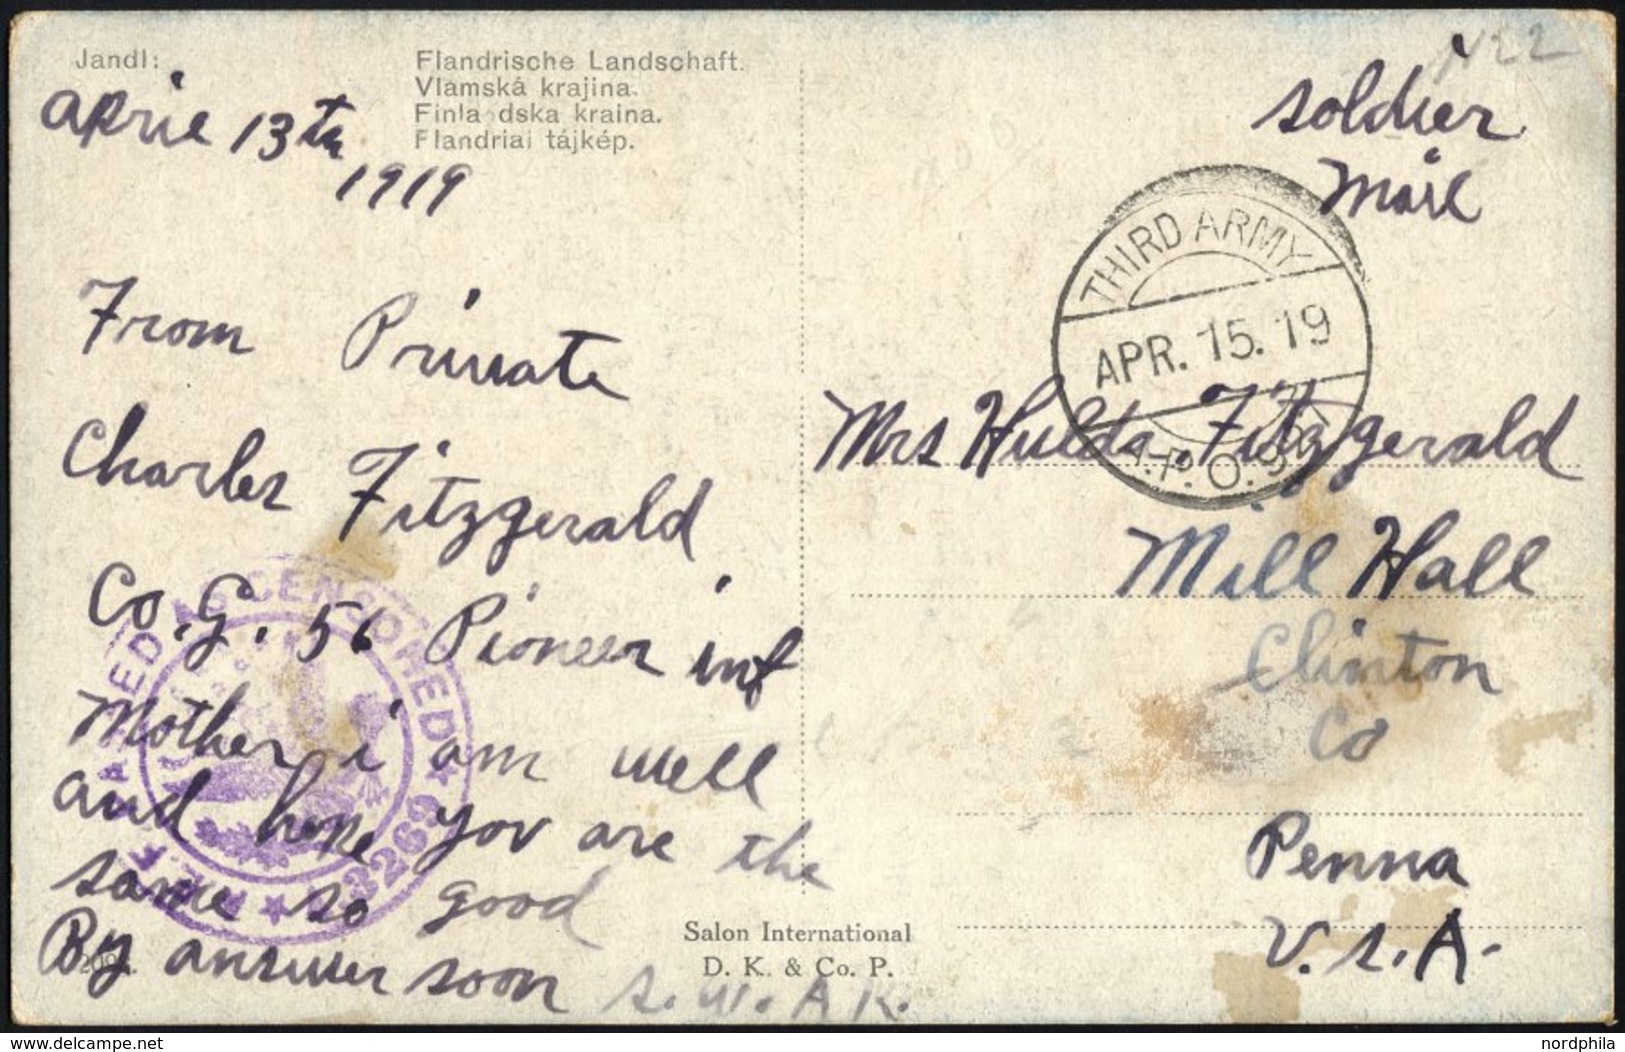 Jandl:
Flandrische Landschaft.
Vlámská krajina.
Finla dska kraina.
Flandriai tájkép.
aprie 13th
1919
From Private
Charles Fitzgerald
Co. G. 56 Pioneer inf
Mother i am well
and hope yov are the
same so good
By answer soon
S.W.A.K.
A.E.F. PASSED AS CENSORED
3269
Salon International
D. K. & Co. P.
N22
soldier
Mail
THIRD ARMY
APR. 15. 19
A.P.O.
Mrs Hulda Fitzgerald
Mill Hall
Clinton
Co
Penna
V.S.A.
nordphila
www.delcampe.net